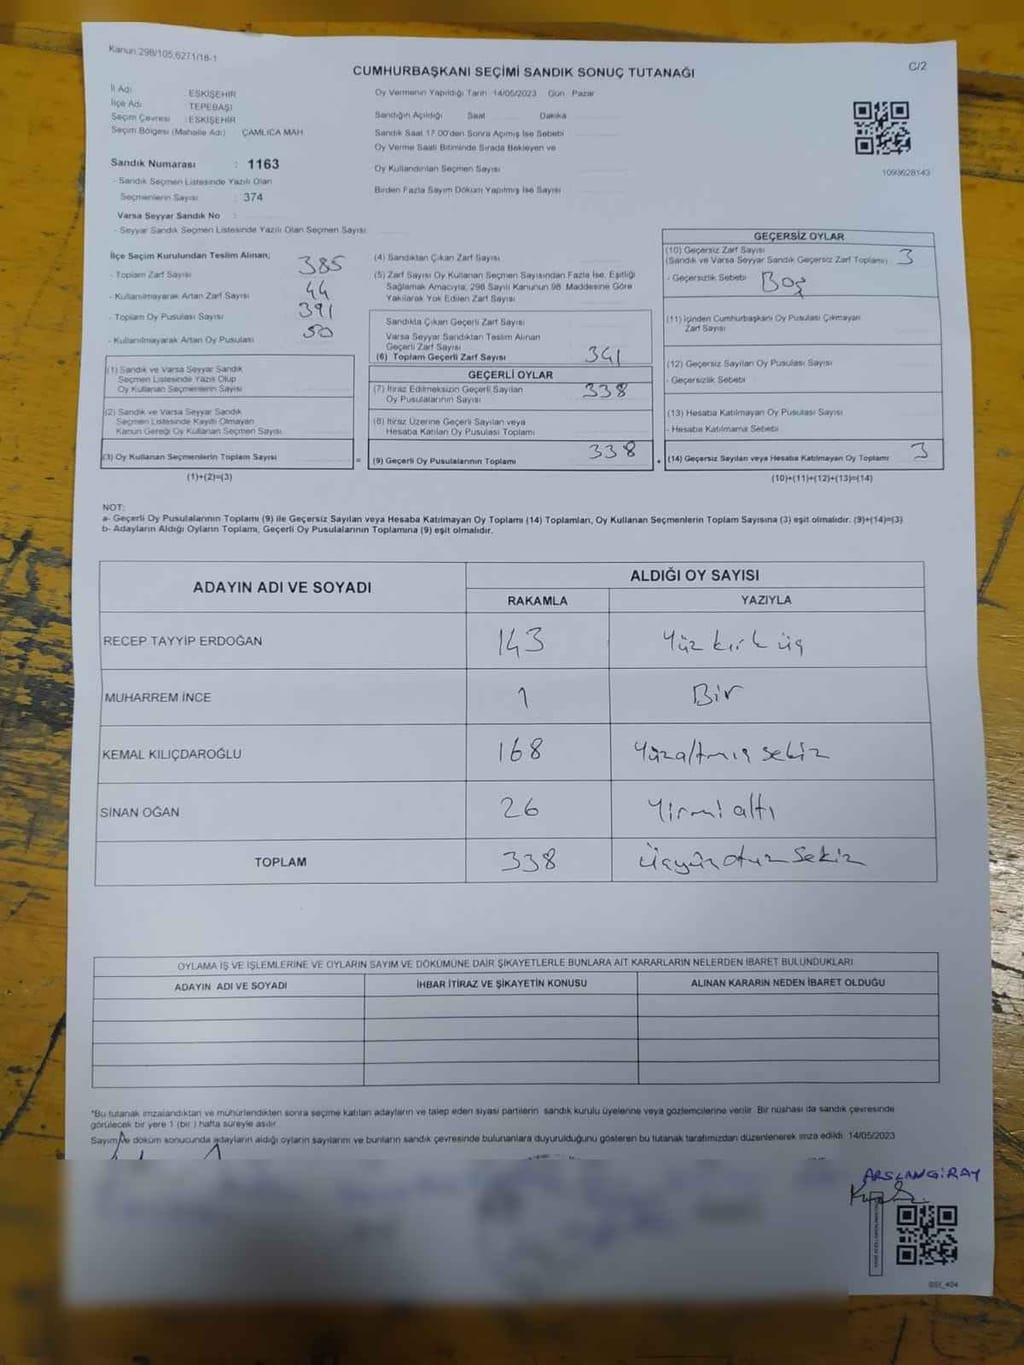 Kanun 298/105,6271/18-1
CUMHURBAŞKANI SEÇİMİ SANDIK SONUÇ TUTANAĞI
C/2
İl Adı : ESKİŞEHİR
İlçe Adı : TEPEBAŞI
Seçim Çevresi : ESKİŞEHİR
Seçim Bölgesi (Mahalle Adı) : ÇAMLICA MAH.
Sandık Numarası : 1163
- Sandık Seçmen Listesinde Yazılı Olan
Seçmenlerin Sayısı : 374
Varsa Seyyar Sandık No :
- Seyyar Sandık Seçmen Listesinde Yazılı Olan Seçmen Sayısı
Oy Vermenin Yapıldığı Tarih 14/05/2023 Gün Pazar
Sandığın Açıldığı Saat Dakika
Sandık Saat 17.00'den Sonra Açımış İse Sebebi
Oy Verme Saati Bitiminde Sırada Bekleyen ve
Oy Kullandırılan Seçmen Sayısı
Birden Fazla Sayım Döküm Yapılmış İse Sayısı
1093628143
İlçe Seçim Kurulundan Teslim Alınan;
- Toplam Zarf Sayısı 385
- Kullanılmayarak Artan Zarf Sayısı 44
- Toplam Oy Pusulası Sayısı 391
- Kullanılmayarak Artan Oy Pusulası 50
(1) Sandık ve Varsa Seyyar Sandık
Seçmen Listesinde Yazılı Olup
Oy Kullanan Seçmenlerin Sayısı
(2) Sandık ve Varsa Seyyar Sandık
Seçmen Listesinde Kayıtlı Olmayan
Kanun Gereği Oy Kullanan Seçmen Sayısı
(3) Oy Kullanan Seçmenlerin Toplam Sayısı
(1)+(2)=(3)
=
(4) Sandıktan Çıkan Zarf Sayısı
(5) Zarf Sayısı Oy Kullanan Seçmen Sayısından Fazla İse, Eşitliği
Sağlamak Amacıyla, 298 Sayılı Kanunun 98. Maddesine Göre
Yakılarak Yok Edilen Zarf Sayısı
Sandıkta Çıkan Geçerli Zarf Sayısı
Varsa Seyyar Sandıktan Teslim Alınan
Geçerli Zarf Sayısı
(6) Toplam Geçerli Zarf Sayısı 341
GEÇERLİ OYLAR
(7) İtiraz Edilmeksizin Geçerli Sayılan
Oy Pusulalarının Sayısı 338
(8) İtiraz Üzerine Geçerli Sayılan veya
Hesaba Katılan Oy Pusulası Toplamı
(9) Geçerli Oy Pusulalarının Toplamı 338
+
GEÇERSİZ OYLAR
(10) Geçersiz Zarf Sayısı
(Sandık ve Varsa Seyyar Sandık Geçersiz Zarf Toplamı) 3
- Geçersizlik Sebebi Boş
(11) İçinden Cumhurbaşkanı Oy Pusulası Çıkmayan
Zarf Sayısı
(12) Geçersiz Sayılan Oy Pusulası Sayısı
- Geçersizlik Sebebi
(13) Hesaba Katılmayan Oy Pusulası Sayısı
- Hesaba Katılmama Sebebi
(14) Geçersiz Sayılan veya Hesaba Katılmayan Oy Toplamı 3
(10)+(11)+(12)+(13)=(14)
NOT:
a- Geçerli Oy Pusulalarının Toplamı (9) ile Geçersiz Sayılan veya Hesaba Katılmayan Oy Toplamı (14) Toplamları, Oy Kullanan Seçmenlerin Toplam Sayısına (3) eşit olmalıdır. (9)+(14)=(3)
b- Adayların Aldığı Oyların Toplamı, Geçerli Oy Pusulalarının Toplamına (9) eşit olmalıdır.
ADAYIN ADI VE SOYADI ALDIĞI OY SAYISI
RAKAMLA YAZIYLA
RECEP TAYYİP ERDOĞAN 143 Yüz kırk üç
MUHARREM İNCE 1 Bir
KEMAL KILIÇDAROĞLU 168 Yüzaltmış sekiz
SİNAN OĞAN 26 Yirmi altı
TOPLAM 338 Üçyüzotuz sekiz
OYLAMA İŞ VE İŞLEMLERİNE VE OYLARIN SAYIM VE DÖKÜMÜNE DAİR ŞİKAYETLERLE BUNLARA AİT KARARLARIN NELERDEN İBARET BULUNDUKLARI
ADAYIN ADI VE SOYADI İHBAR İTİRAZ VE ŞİKAYETİN KONUSU ALINAN KARARIN NEDEN İBARET OLDUĞU
*Bu tutanak imzalandıktan ve mühürlendikten sonra seçime katılan adayların ve talep eden siyasi partilerin sandık kurulu üyelerine veya gözlemcilerine verilir. Bir nüshası da sandık çevresinde
görülecek bir yere 1 (bir ) hafta süreyle asılır.
Sayım ve döküm sonucunda adayların aldığı oyların sayılarını ve bunların sandık çevresinde bulunanlara duyurulduğunu gösteren bu tutanak tarafımızdan düzenlenerek imza edildi. 14/05/2023
ARSLANGİRAY